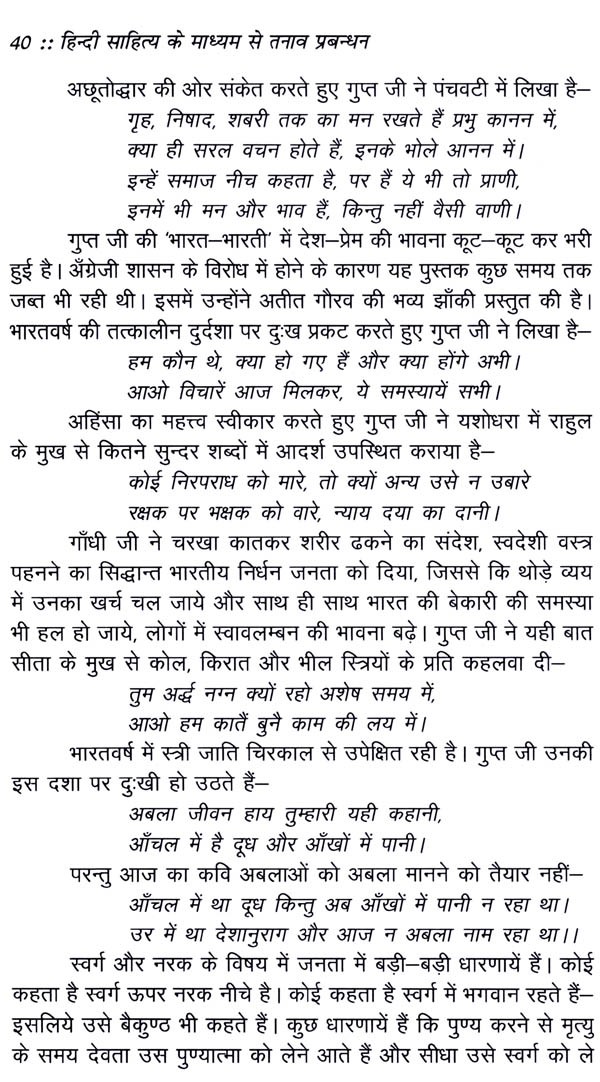 40 :: हिन्दी साहित्य के माध्यम से तनाव प्रबन्धन
अछूतोद्धार की ओर संकेत करते हुए गुप्त जी ने पंचवटी में लिखा है–
गृह, निषाद, शबरी तक का मन रखते हैं प्रभु कानन में,
क्या ही सरल वचन होते हैं, इनके भोले आनन में।
इन्हें समाज नीच कहता है, पर हैं ये भी तो प्राणी,
इनमें भी मन और भाव हैं, किन्तु नहीं वैसी वाणी।
गुप्त जी की 'भारत–भारती' में देश–प्रेम की भावना कूट–कूट कर भरी
हुई है। अँग्रेजी शासन के विरोध में होने के कारण यह पुस्तक कुछ समय तक
जब्त भी रही थी। इसमें उन्होंने अतीत गौरव की भव्य झाँकी प्रस्तुत की है।
भारतवर्ष की तत्कालीन दुर्दशा पर दुःख प्रकट करते हुए गुप्त जी ने लिखा है–
हम कौन थे, क्या हो गए हैं और क्या होंगे अभी।
आओ विचारें आज मिलकर, ये समस्यायें सभी।
अहिंसा का महत्त्व स्वीकार करते हुए गुप्त जी ने यशोधरा में राहुल
के मुख से कितने सुन्दर शब्दों में आदर्श उपस्थित कराया है–
कोई निरपराध को मारे, तो क्यों अन्य उसे न उबारे
रक्षक पर भक्षक को वारे, न्याय दया का दानी।
गाँधी जी ने चरखा कातकर शरीर ढकने का संदेश, स्वदेशी वस्त्र
पहनने का सिद्धान्त भारतीय निर्धन जनता को दिया, जिससे कि थोड़े व्यय
में उनका खर्च चल जाये और साथ ही साथ भारत की बेकारी की समस्या
भी हल हो जाये, लोगों में स्वावलम्बन की भावना बढ़े। गुप्त जी ने यही बात
सीता के मुख से कोल, किरात और भील स्त्रियों के प्रति कहलवा दी–
तुम अर्द्ध नग्न क्यों रहो अशेष समय में,
आओ हम कातैं बुनै काम की लय में।
भारतवर्ष में स्त्री जाति चिरकाल से उपेक्षित रही है। गुप्त जी उनकी
इस दशा पर दुःखी हो उठते हैं–
अबला जीवन हाय तुम्हारी यही कहानी,
आँचल में है दूध और आँखों में पानी।
परन्तु आज का कवि अबलाओं को अबला मानने को तैयार नहीं–
आँचल में था दूध किन्तु अब आँखों में पानी न रहा था।
उर में था देशानुराग और आज न अबला नाम रहा था।।
स्वर्ग और नरक के विषय में जनता में बड़ी–बड़ी धारणायें हैं। कोई
कहता है स्वर्ग ऊपर नरक नीचे है। कोई कहता है स्वर्ग में भगवान रहते हैं–
इसलिये उसे बैकुण्ठ भी कहते हैं। कुछ धारणायें हैं कि पुण्य करने से मृत्यु
के समय देवता उस पुण्यात्मा को लेने आते हैं और सीधा उसे स्वर्ग को ले